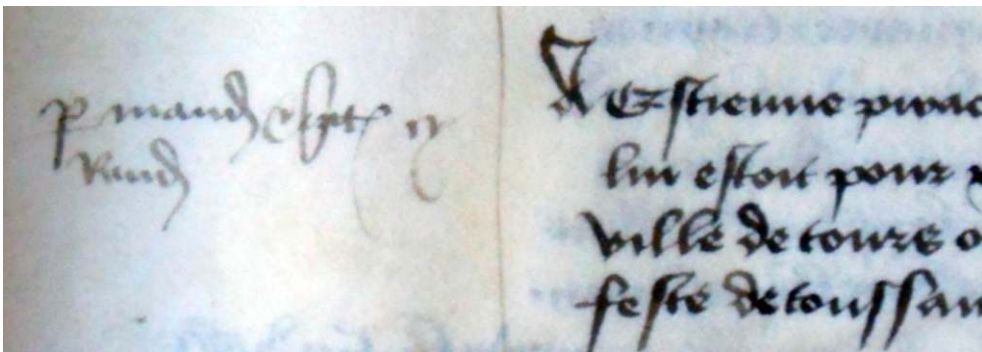 p mand et quict cy
Rand
A Estienne
luy estoit pour
ville de tours
feste de toussain